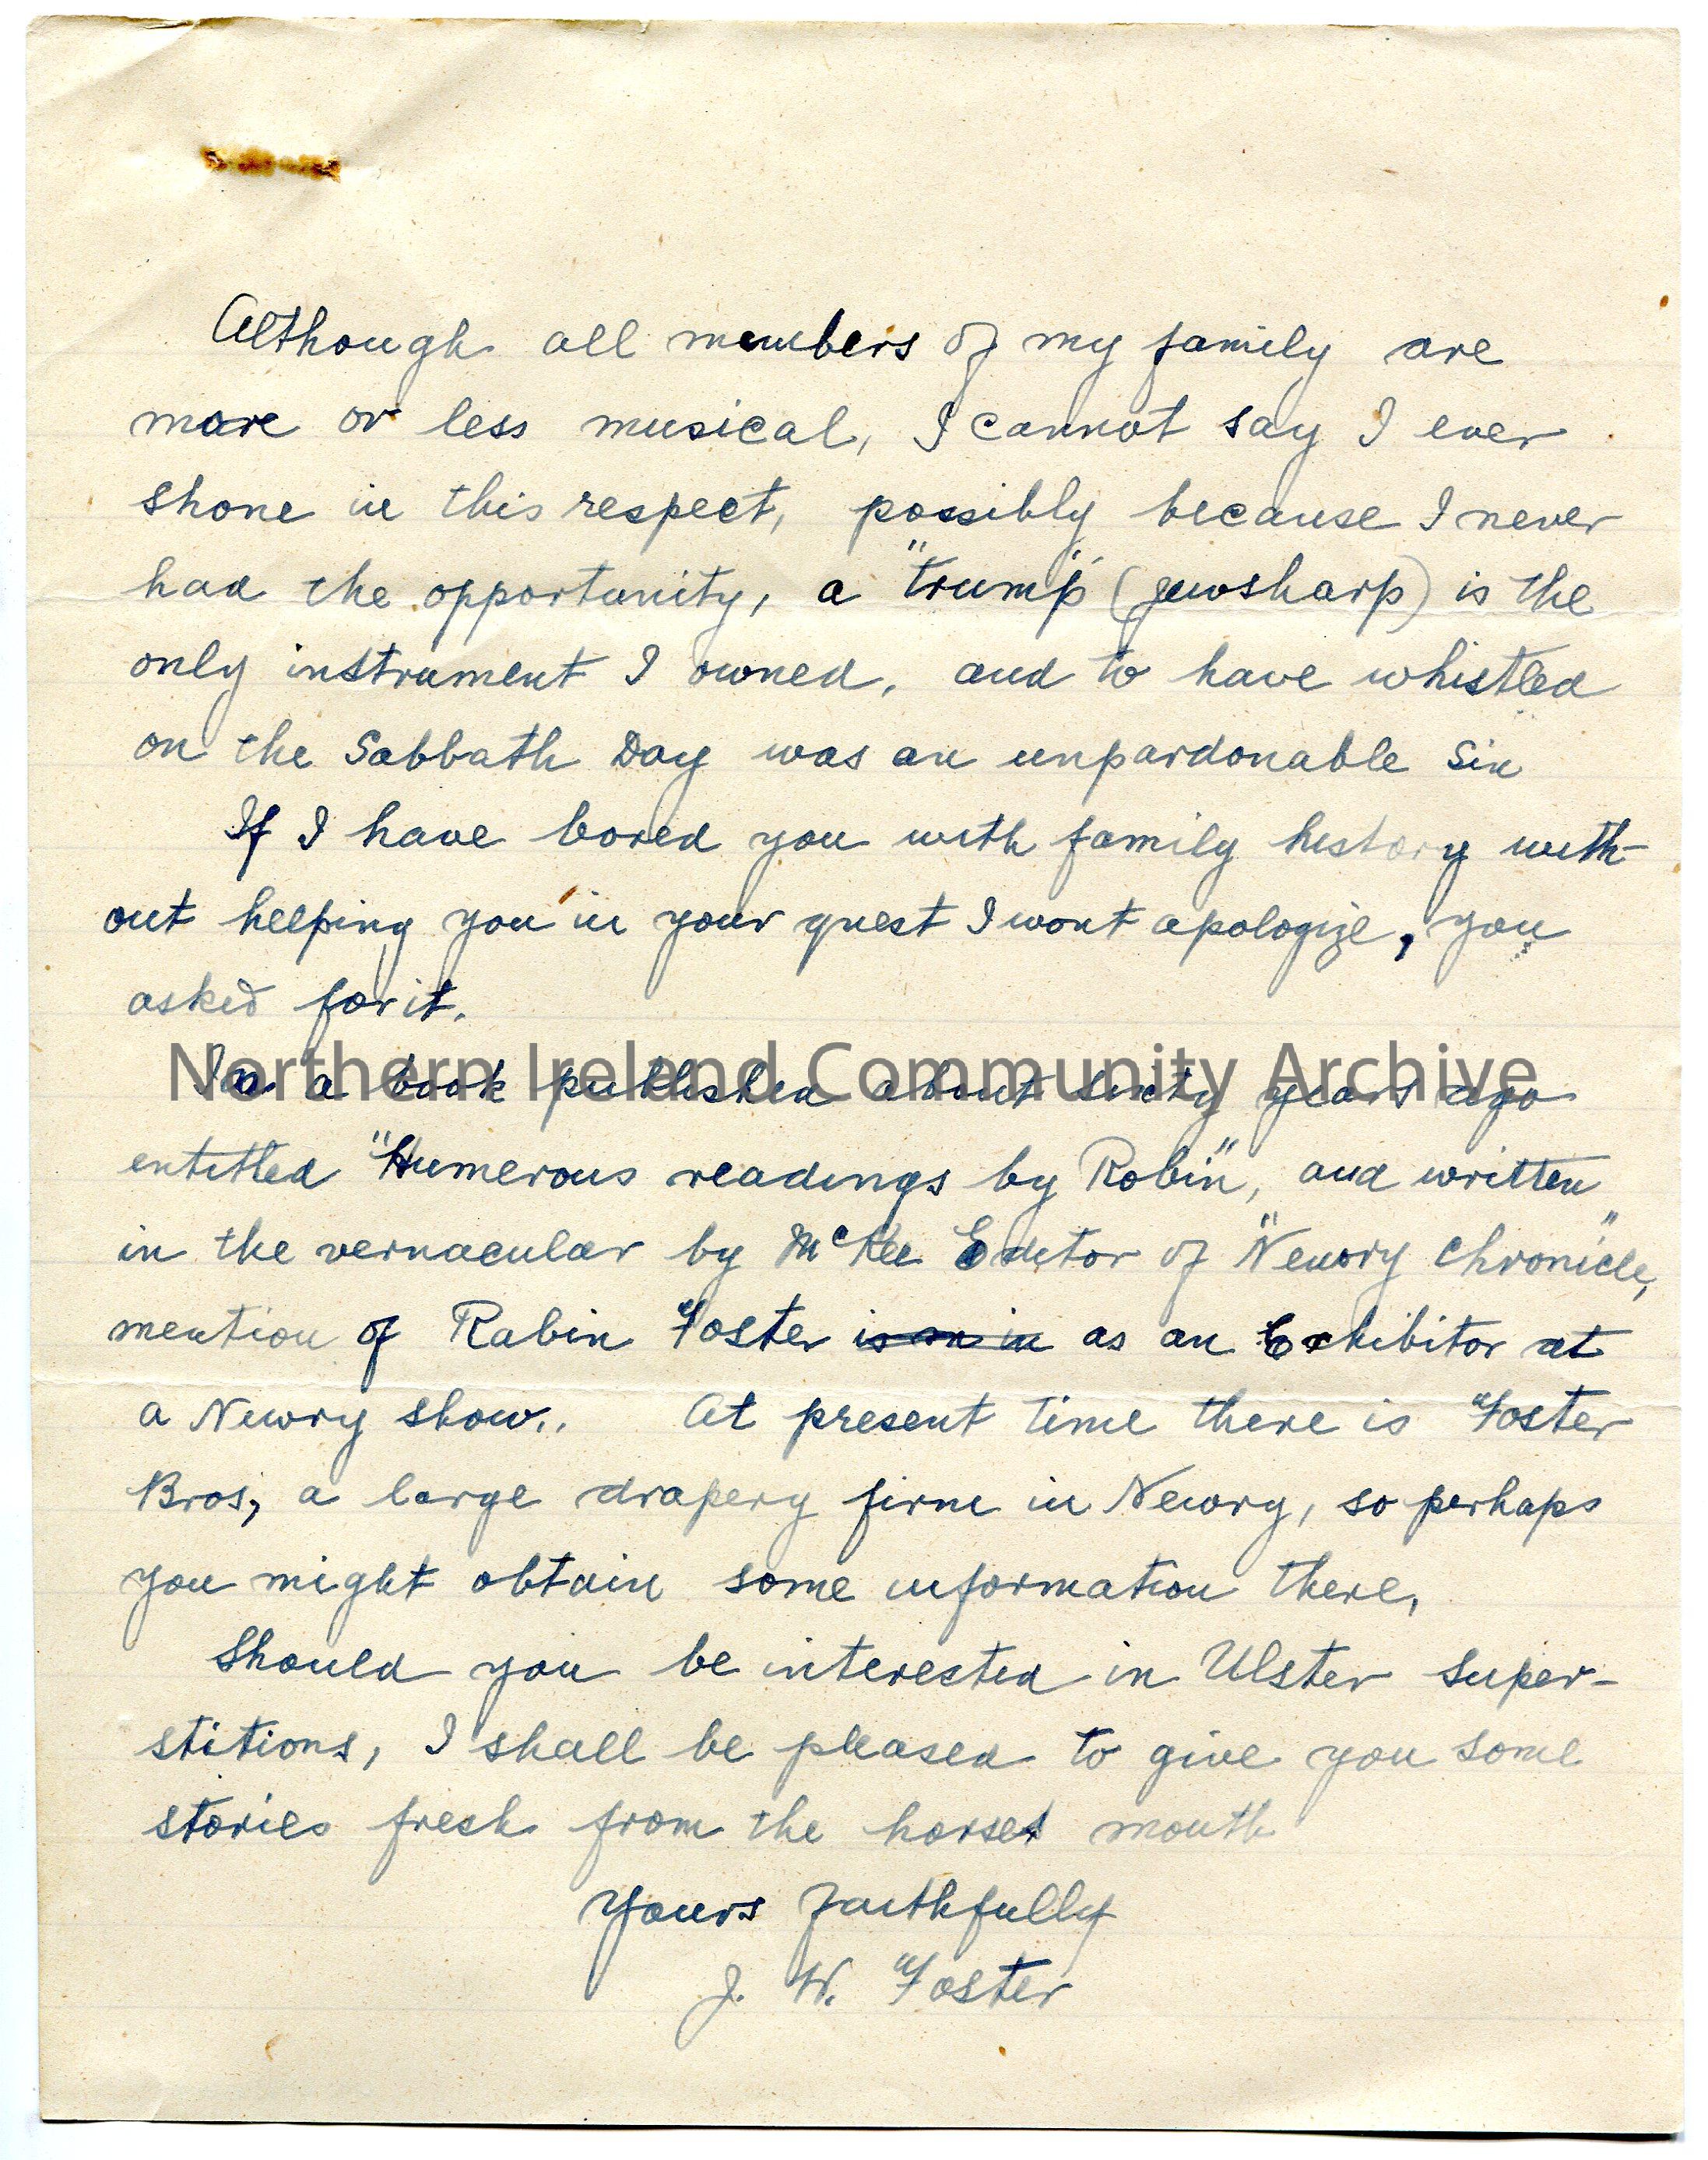 Although all members of my family are
more or less musical, I cannot say I ever
shone in this respect, possibly because I never
had the opportunity, a "trump" (jewsharp) is the
only instrument I owned, and to have whistled
on the Sabbath Day was an unpardonable Sin
If I have bored you with family history with-
out helping you in your quest I wont apologize, you
asked for it.
Northern Ireland Community Archive
In a book published about sixty years ago
entitled "Humerous readings by Robin", and written
in the vernacular by McKee Editor of "Newry Chronicle",
mention of Robin Foster is on in as an Exhibitor at
a Newry show.. At present time there is Foster
Bros, a large drapery firm in Newry, so perhaps
you might obtain some information there,
Should you be interested in Ulster super-
stitions, I shall be pleased to give you some
stories fresh from the horses mouth
Yours faithfully
J. W. Foster